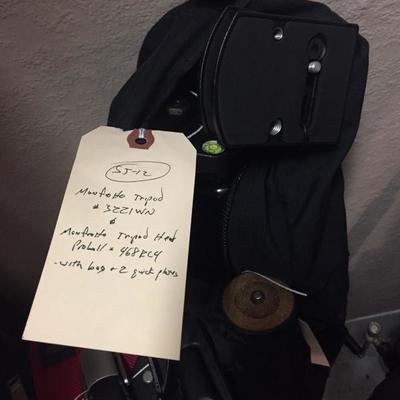 SJ-12
Manfrotto Tripod
# 3221WN
&
Manfrotto Tripod Head
Proball # 468RC4
- with bag + 2 quick plates